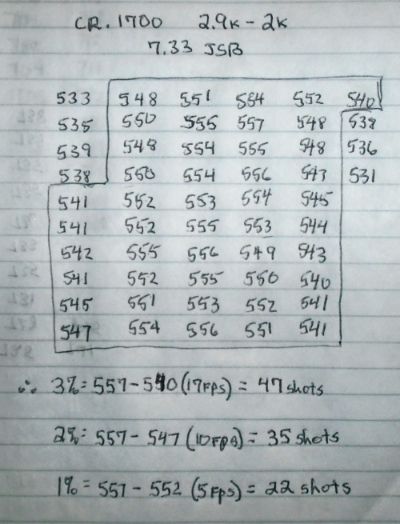 CR. 1700 2.9K - 2K
7.33 JSB
533 548 551 554 552 540
535 550 555 557 548 538
539 548 554 555 548 536
538 550 554 556 547 531
541 552 553 554 545
541 552 555 553 544
542 555 556 549 543
541 552 555 550 540
545 551 553 552 541
547 554 556 551 541
∴ 3% = 557 - 540 (17 FPS) = 47 shots
2% = 557 - 547 (10 FPS) = 35 shots
1% = 557 - 552 (5 FPS) = 22 shots